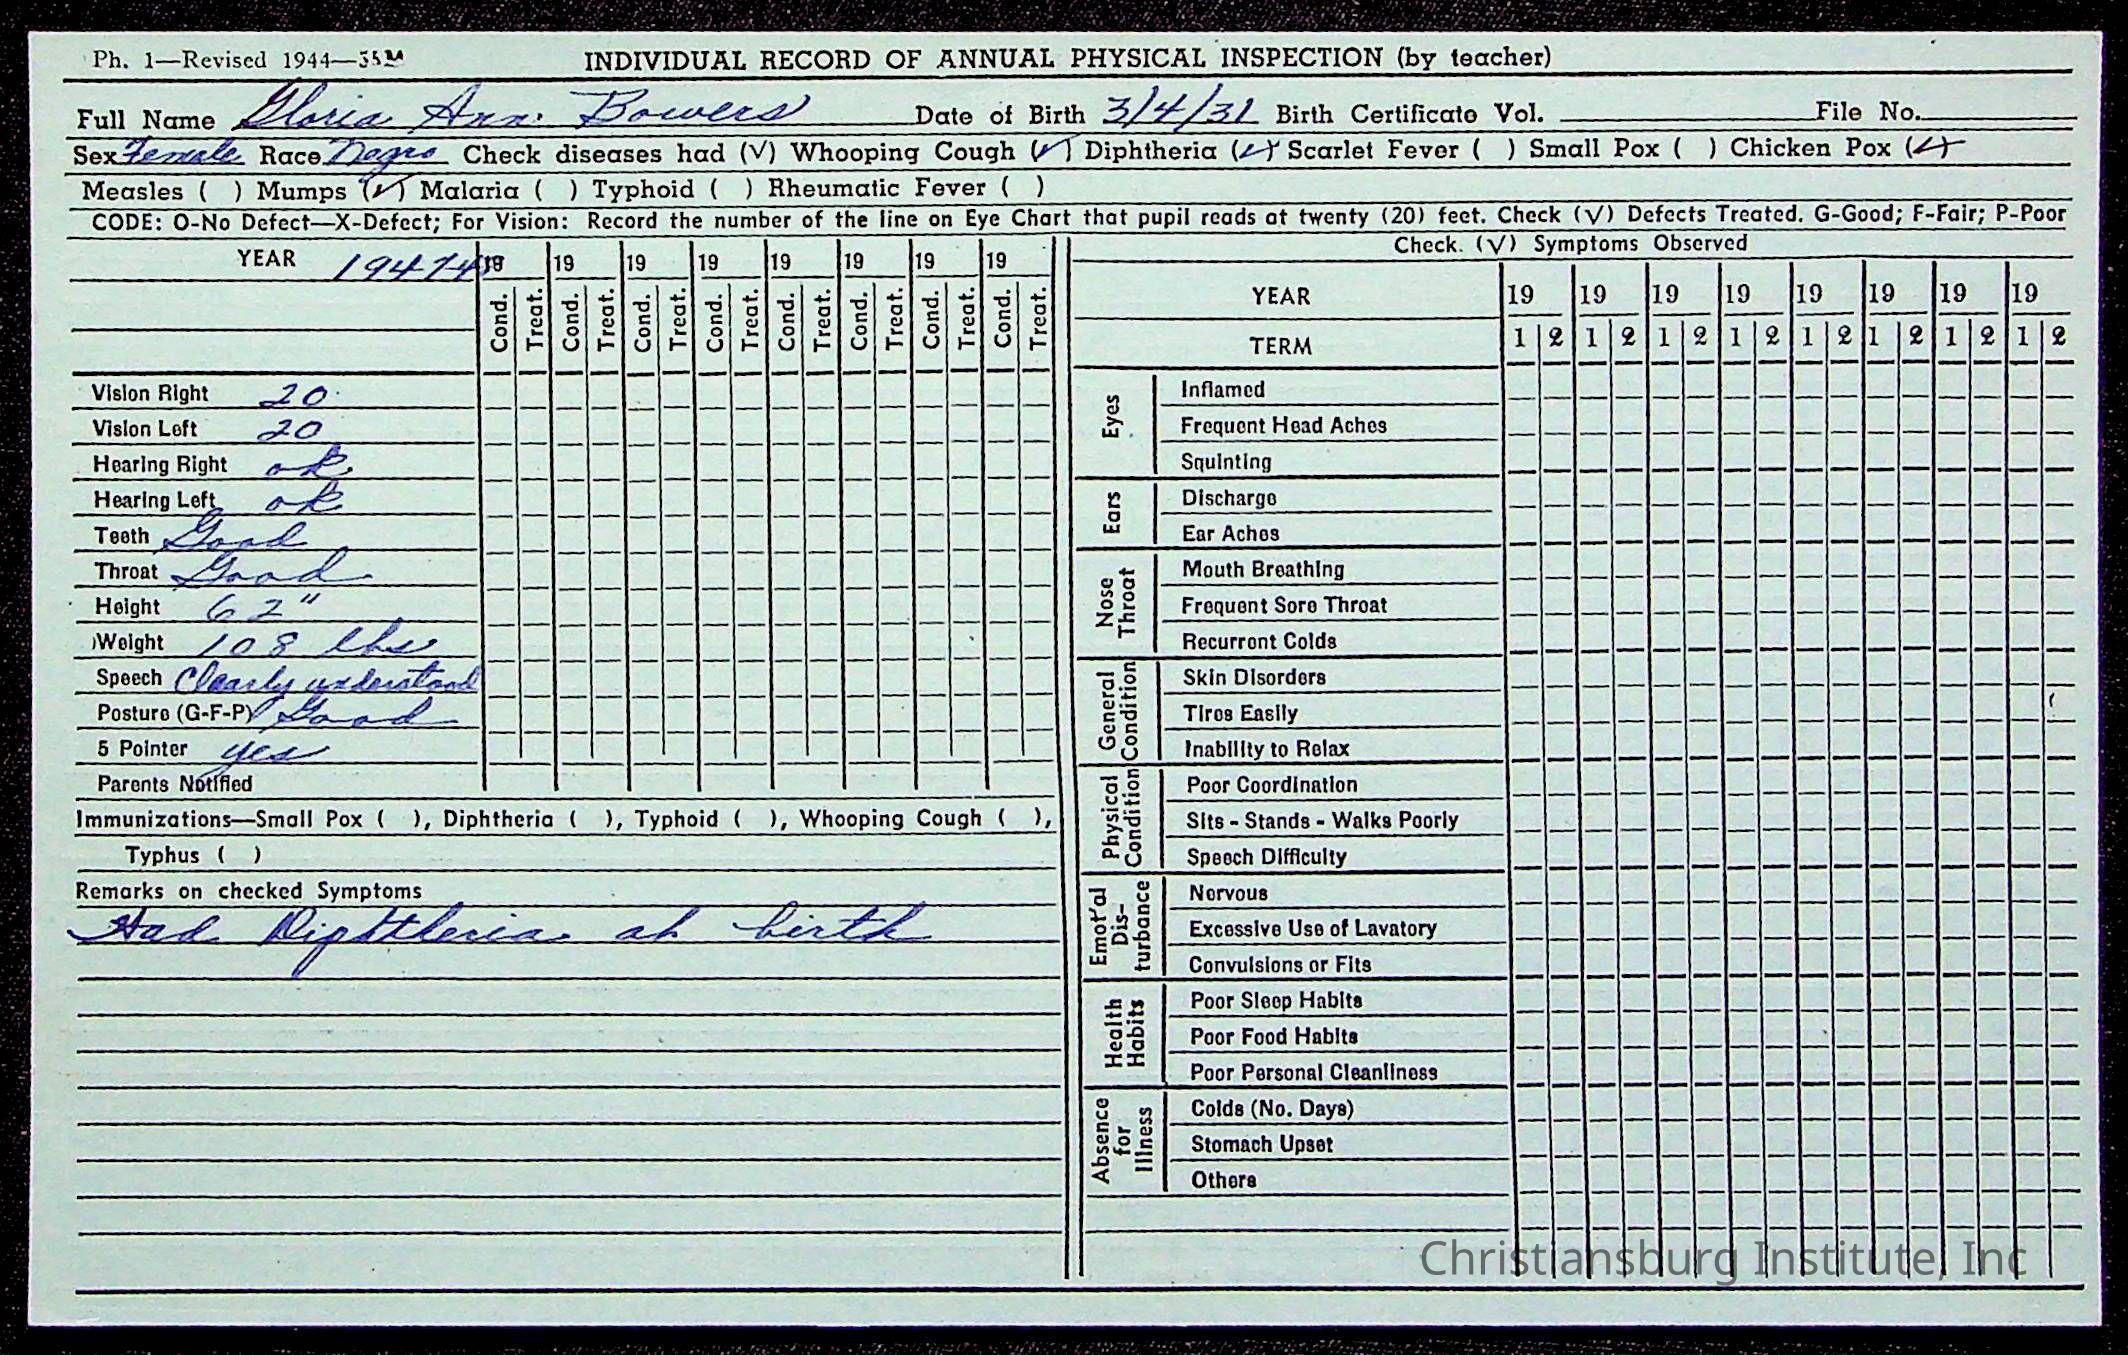 Ph. 1—Revised 1944—35M
INDIVIDUAL RECORD OF ANNUAL PHYSICAL INSPECTION (by teacher)
Full Name Gloria Ann Bowers Date of Birth 3/4/31 Birth Certificate Vol. File No.
Sex Female Race Negro Check diseases had (√) Whooping Cough (✓) Diphtheria (✓) Scarlet Fever ( ) Small Pox ( ) Chicken Pox (✓)
Measles ( ) Mumps (✓) Malaria ( ) Typhoid ( ) Rheumatic Fever ( )
CODE: O-No Defect—X-Defect; For Vision: Record the number of the line on Eye Chart that pupil reads at twenty (20) feet. Check (√) Defects Treated. G-Good; F-Fair; P-Poor
YEAR 1947-48 19 19 19 19 19 19 19 19
Cond. Treat. Cond. Treat. Cond. Treat. Cond. Treat. Cond. Treat. Cond. Treat. Cond. Treat. Cond. Treat.
Vision Right 20
Vision Left 20
Hearing Right ok
Hearing Left ok
Teeth Good
Throat Good
Height 62"
Weight 108 lbs
Speech Clearly understood
Posture (G-F-P) Good
5 Pointer yes
Parents Notified
Immunizations—Small Pox ( ), Diphtheria ( ), Typhoid ( ), Whooping Cough ( ),
Typhus ( )
Remarks on checked Symptoms
Had Diphtheria at birth
Check. (√) Symptoms Observed
YEAR 19 19 19 19 19 19 19 19
TERM 1 2 1 2 1 2 1 2 1 2 1 2 1 2 1 2
Eyes
Inflamed
Frequent Head Aches
Squinting
Ears
Discharge
Ear Aches
Nose Throat
Mouth Breathing
Frequent Sore Throat
Recurrent Colds
General Condition
Skin Disorders
Tires Easily
Inability to Relax
Physical Condition
Poor Coordination
Sits - Stands - Walks Poorly
Speech Difficulty
Emot'al Dis-turbance
Nervous
Excessive Use of Lavatory
Convulsions or Fits
Health Habits
Poor Sleep Habits
Poor Food Habits
Poor Personal Cleanliness
Absence for Illness
Colds (No. Days)
Stomach Upset
Others
Christiansburg Institute, Inc